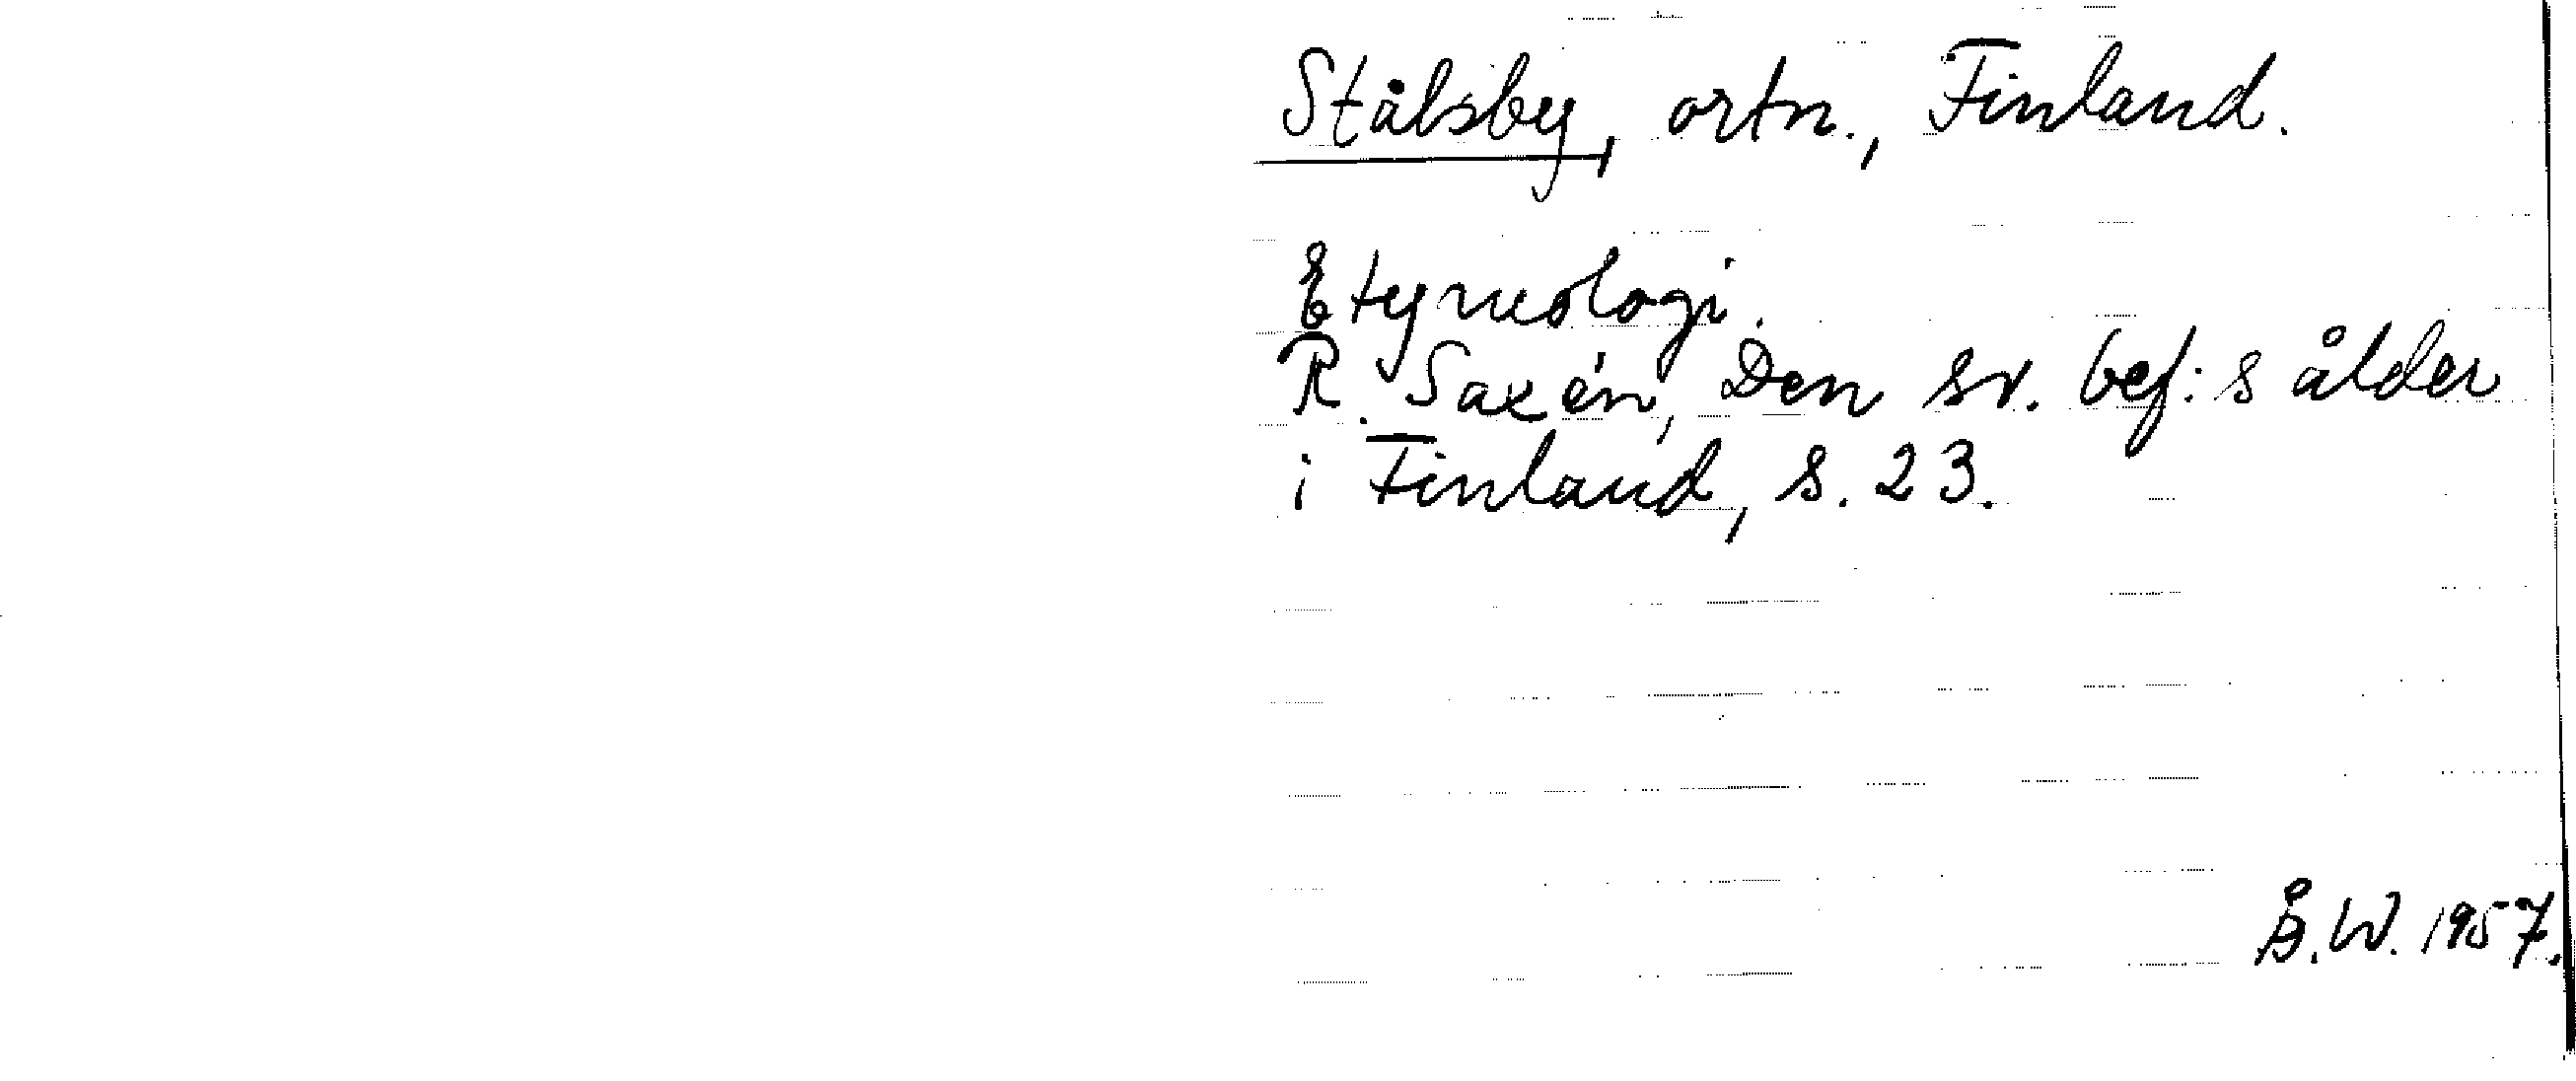 Stålsby, ortn., Finland.
Etymologi.
R. Saxén, Den sv. bef:s ålder
i Finland, s. 23.
Å.W. 1957.